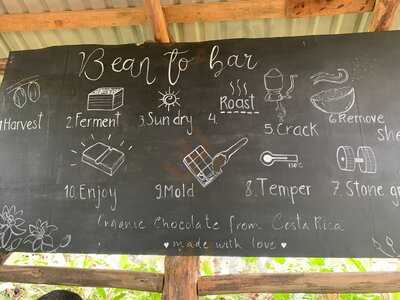 Bean to bar
1.Harvest 2.Ferment 3.Sun dry 4. Roast 5.Crack 6.Remove
10.Enjoy 9.Mold 8.Temper 7.Stone
Organic chocolate from Costa Rica
♥ made with love ♥